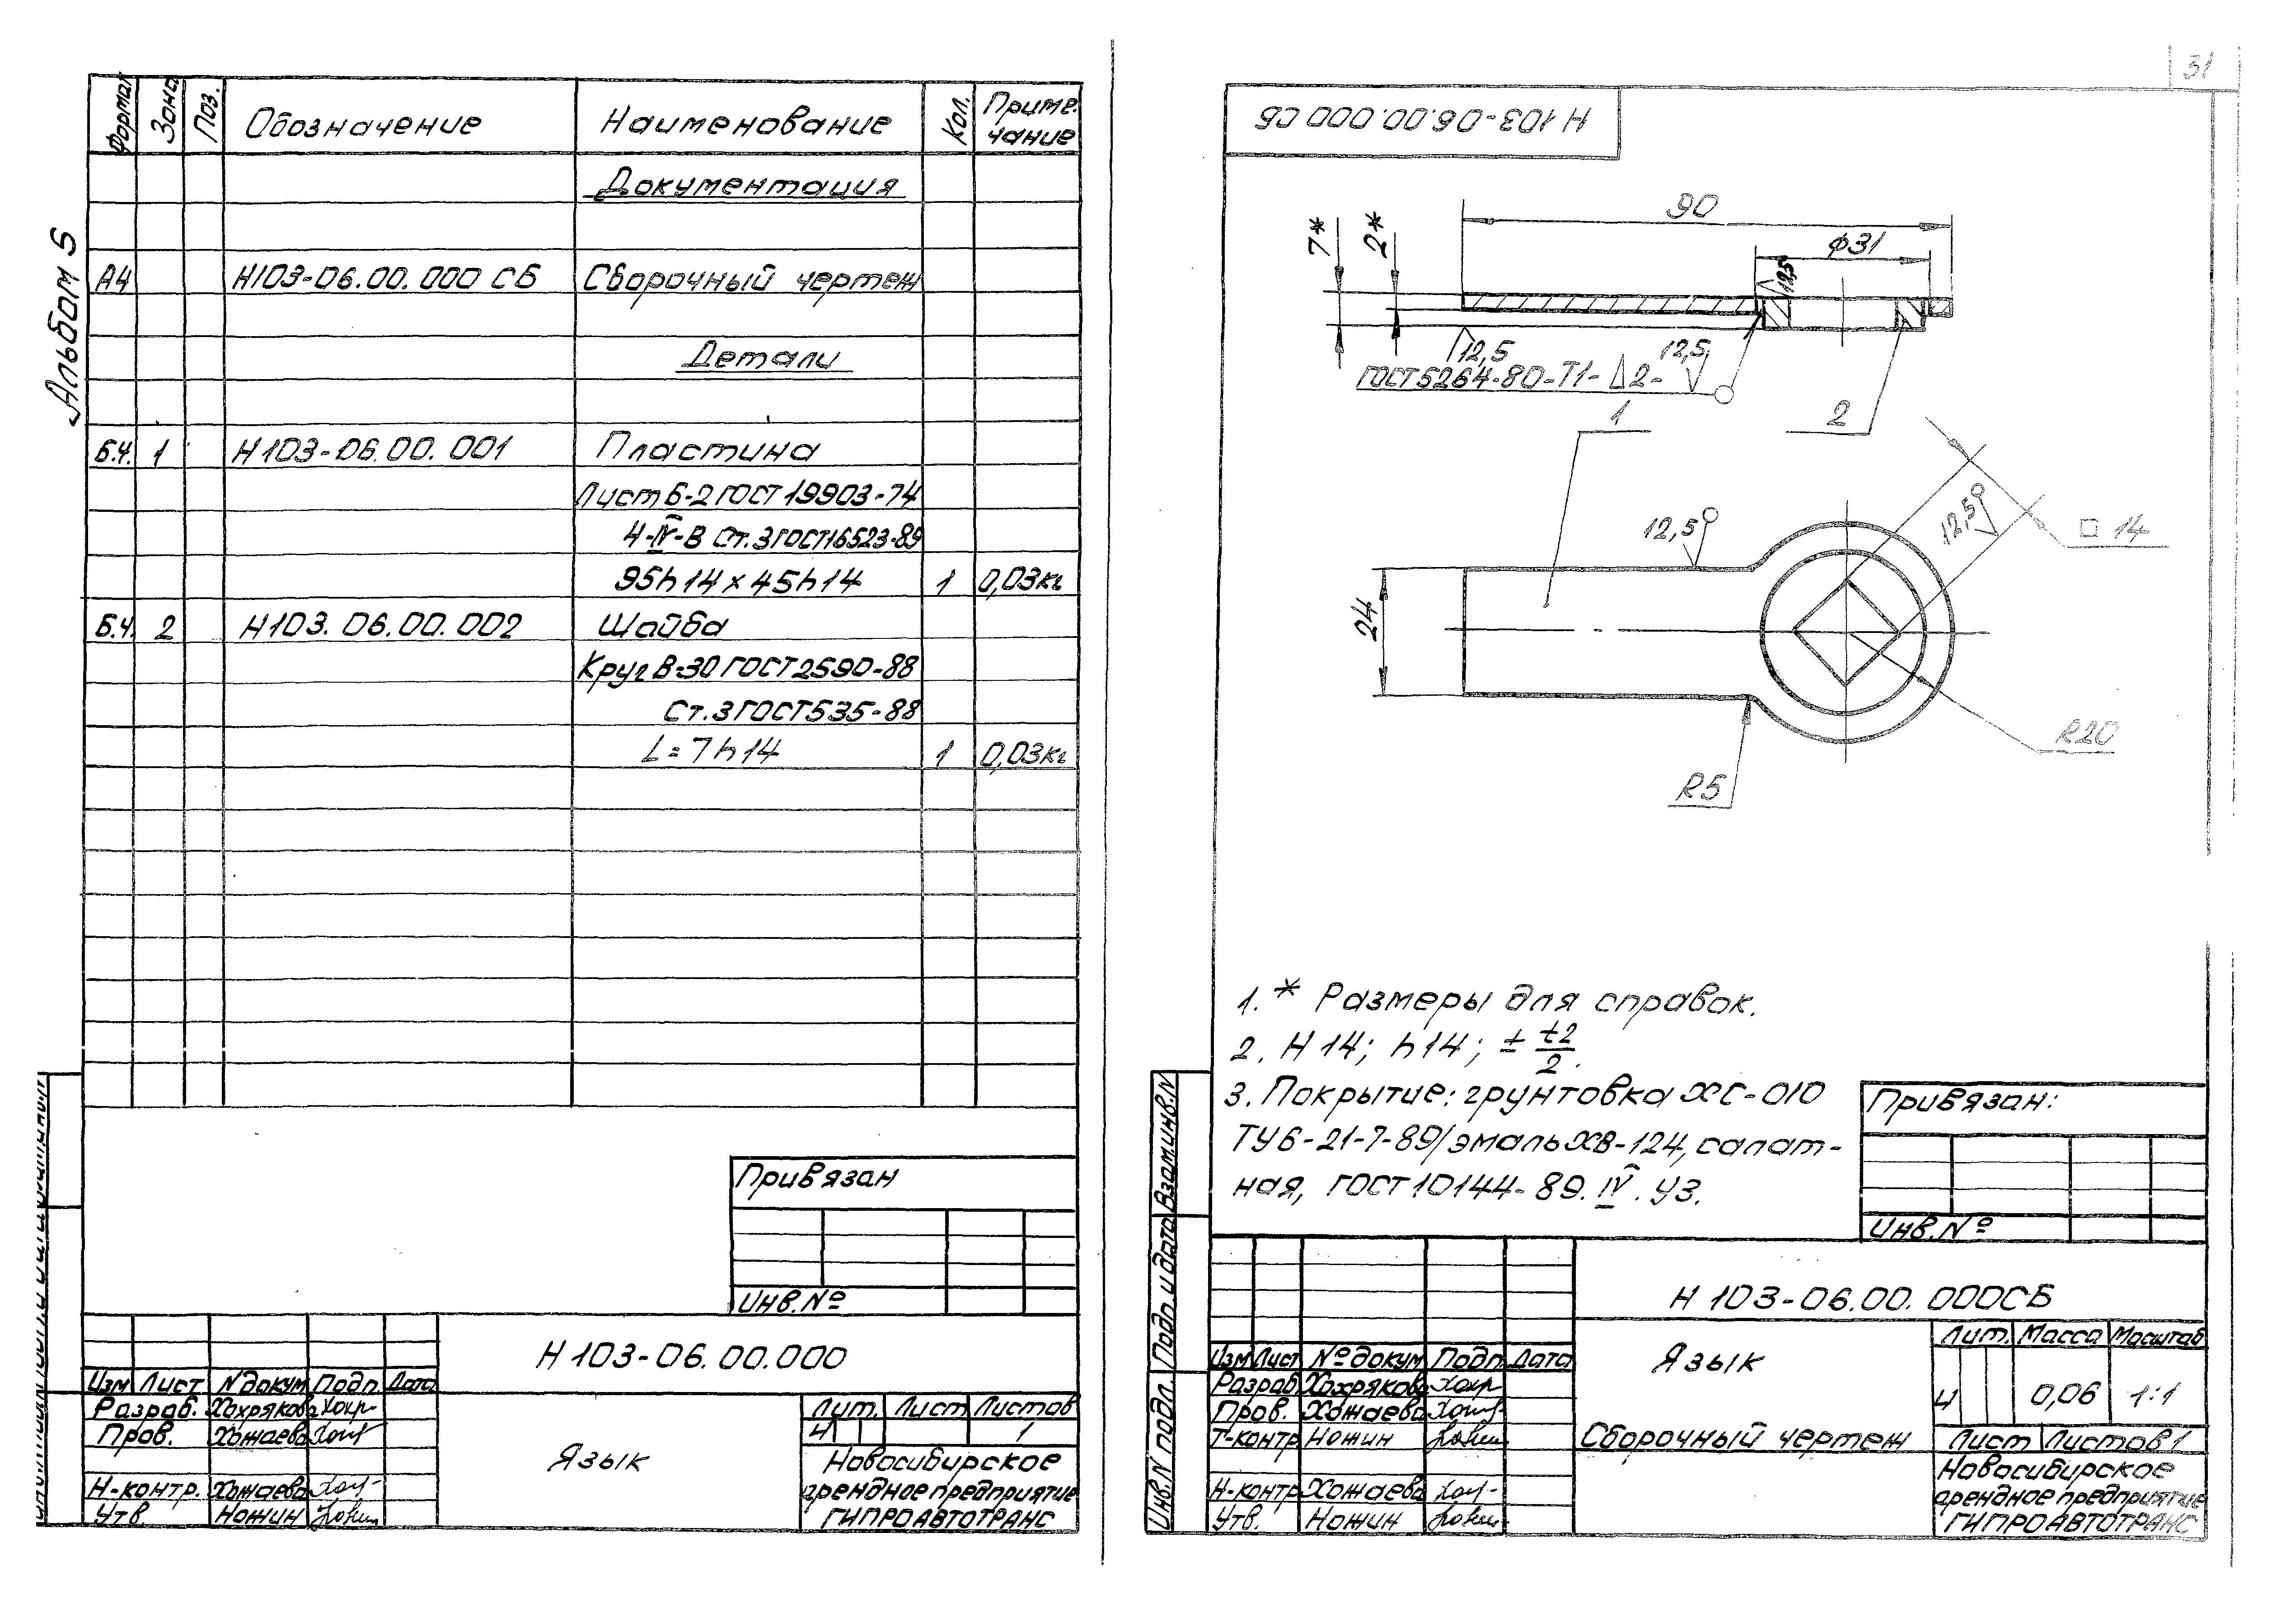 Альбом 5
Формат Зона Поз. Обозначение Наименование Кол. Приме-
чание
Документация
А4 Н103-06.00.000 СБ Сборочный чертеж
Детали
Б.Ч. 1 Н103-06.00.001 Пластина
Лист Б-2 ГОСТ 19903-74
4-IV-В Ст.3 ГОСТ16523-89
95h14 х 45h14 1 0,03кг
Б.Ч. 2 Н103.06.00.002 Шайба
Круг В-30 ГОСТ 2590-88
Ст.3 ГОСТ535-88
L=7h14 1 0,03кг
Привязан
Инв.№
Н103-06.00.000
Изм Лист N докум Подп. Дата
Разраб. Хохрякова
Пров. Хожаева
Н-контр. Хожаева
Утв. Ножин
Язык
Лит. Лист Листов
И 1
Новосибирское
арендное предприятие
ГИПРОАВТОТРАНС
31
Н 103-06.00.000 СБ
90
7* 2* ф31
12,5
12,5
ГОСТ5264-80-Т1-⊿2- 12,5
1 2
12,5
12,5
□ 14
24
R20
R5
1. * Размеры для справок.
2. Н14; h14; ± t2/2.
3. Покрытие: грунтовка ХС-010
ТУ6-21-7-89/эмаль ХВ-124, салат-
ная, ГОСТ10144-89. IV. У3.
Привязан:
Инв.№
Взам.инв.N
Подп. и дата
Инв.N подл.
Н103-06.00.000СБ
Изм Лист № докум Подп. Дата
Разраб. Хохрякова
Пров. Хожаева
Т-контр Ножин
Н-контр Хожаева
Утв. Ножин
Язык
Сборочный чертеж
Лит. Масса Масштаб
И 0,06 1:1
Лист Листов 1
Новосибирское
арендное предприятие
ГИПРОАВТОТРАНС